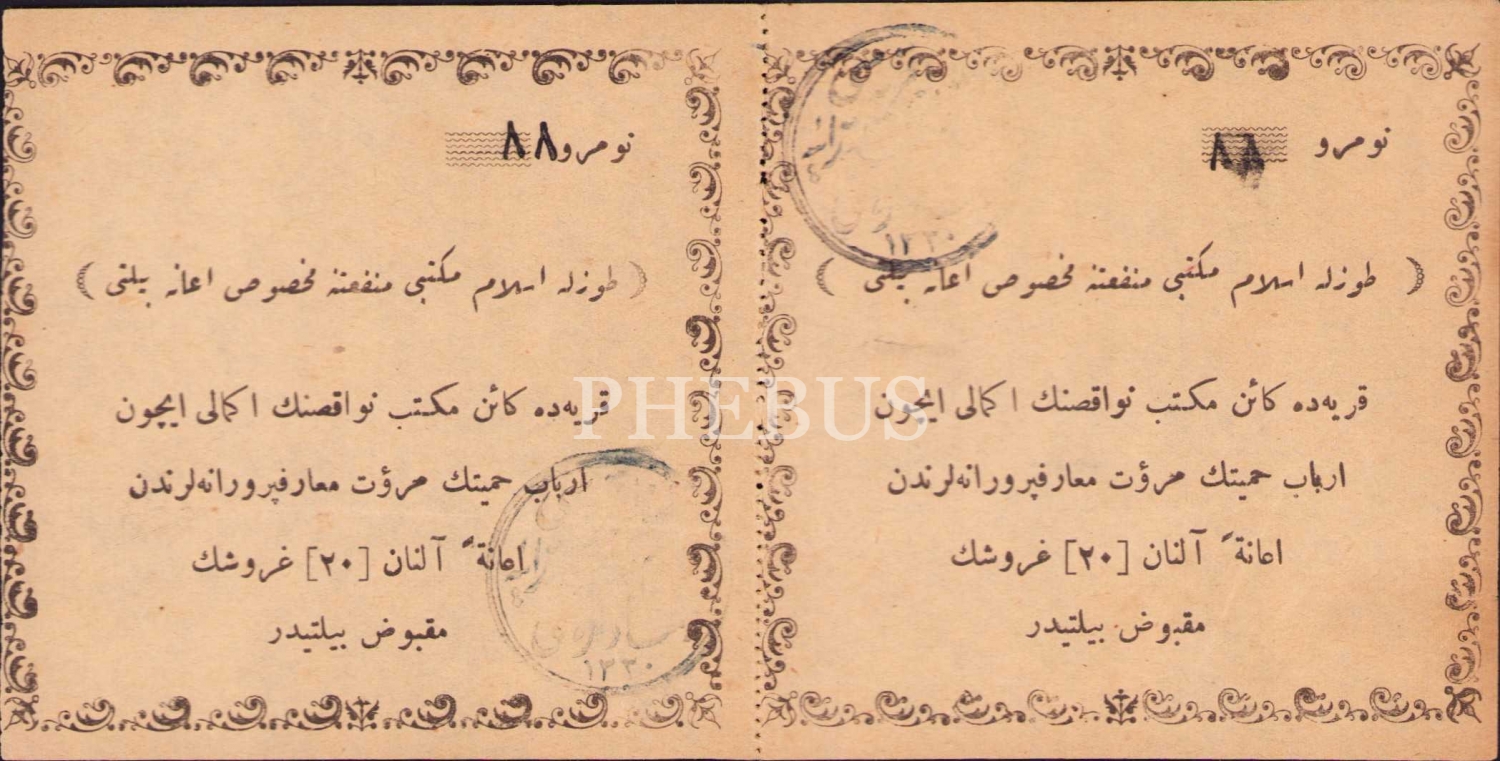 نومرو ٨٨
( طوزله اسلام مكتبی منفعتنه مخصوص اعانه بیلتی )
قریه‌ده كائن مكتب نواقصنك اكمالی ایچون
ارباب حمیتك مرؤت معارفپرورانه‌لرندن
اعانةً آلنان [٢٠] غروشك
مقبوض بیلتیدر
١٣٣٠
نومرو ٨٨
( طوزله اسلام مكتبی منفعتنه مخصوص اعانه بیلتی )
قریه‌ده كائن مكتب نواقصنك اكمالی ایچون
ارباب حمیتك مرؤت معارفپرورانه‌لرندن
اعانةً آلنان [٢٠] غروشك
مقبوض بیلتیدر
١٣٣٠
PHEBUS